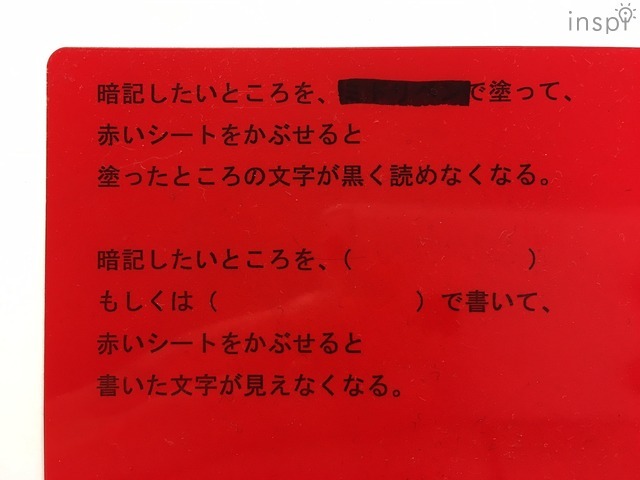 inspi
暗記したいところを、で塗って、
赤いシートをかぶせると
塗ったところの文字が黒く読めなくなる。
暗記したいところを、（　　　　　　　）
もしくは（　　　　　　　　）で書いて、
赤いシートをかぶせると
書いた文字が見えなくなる。